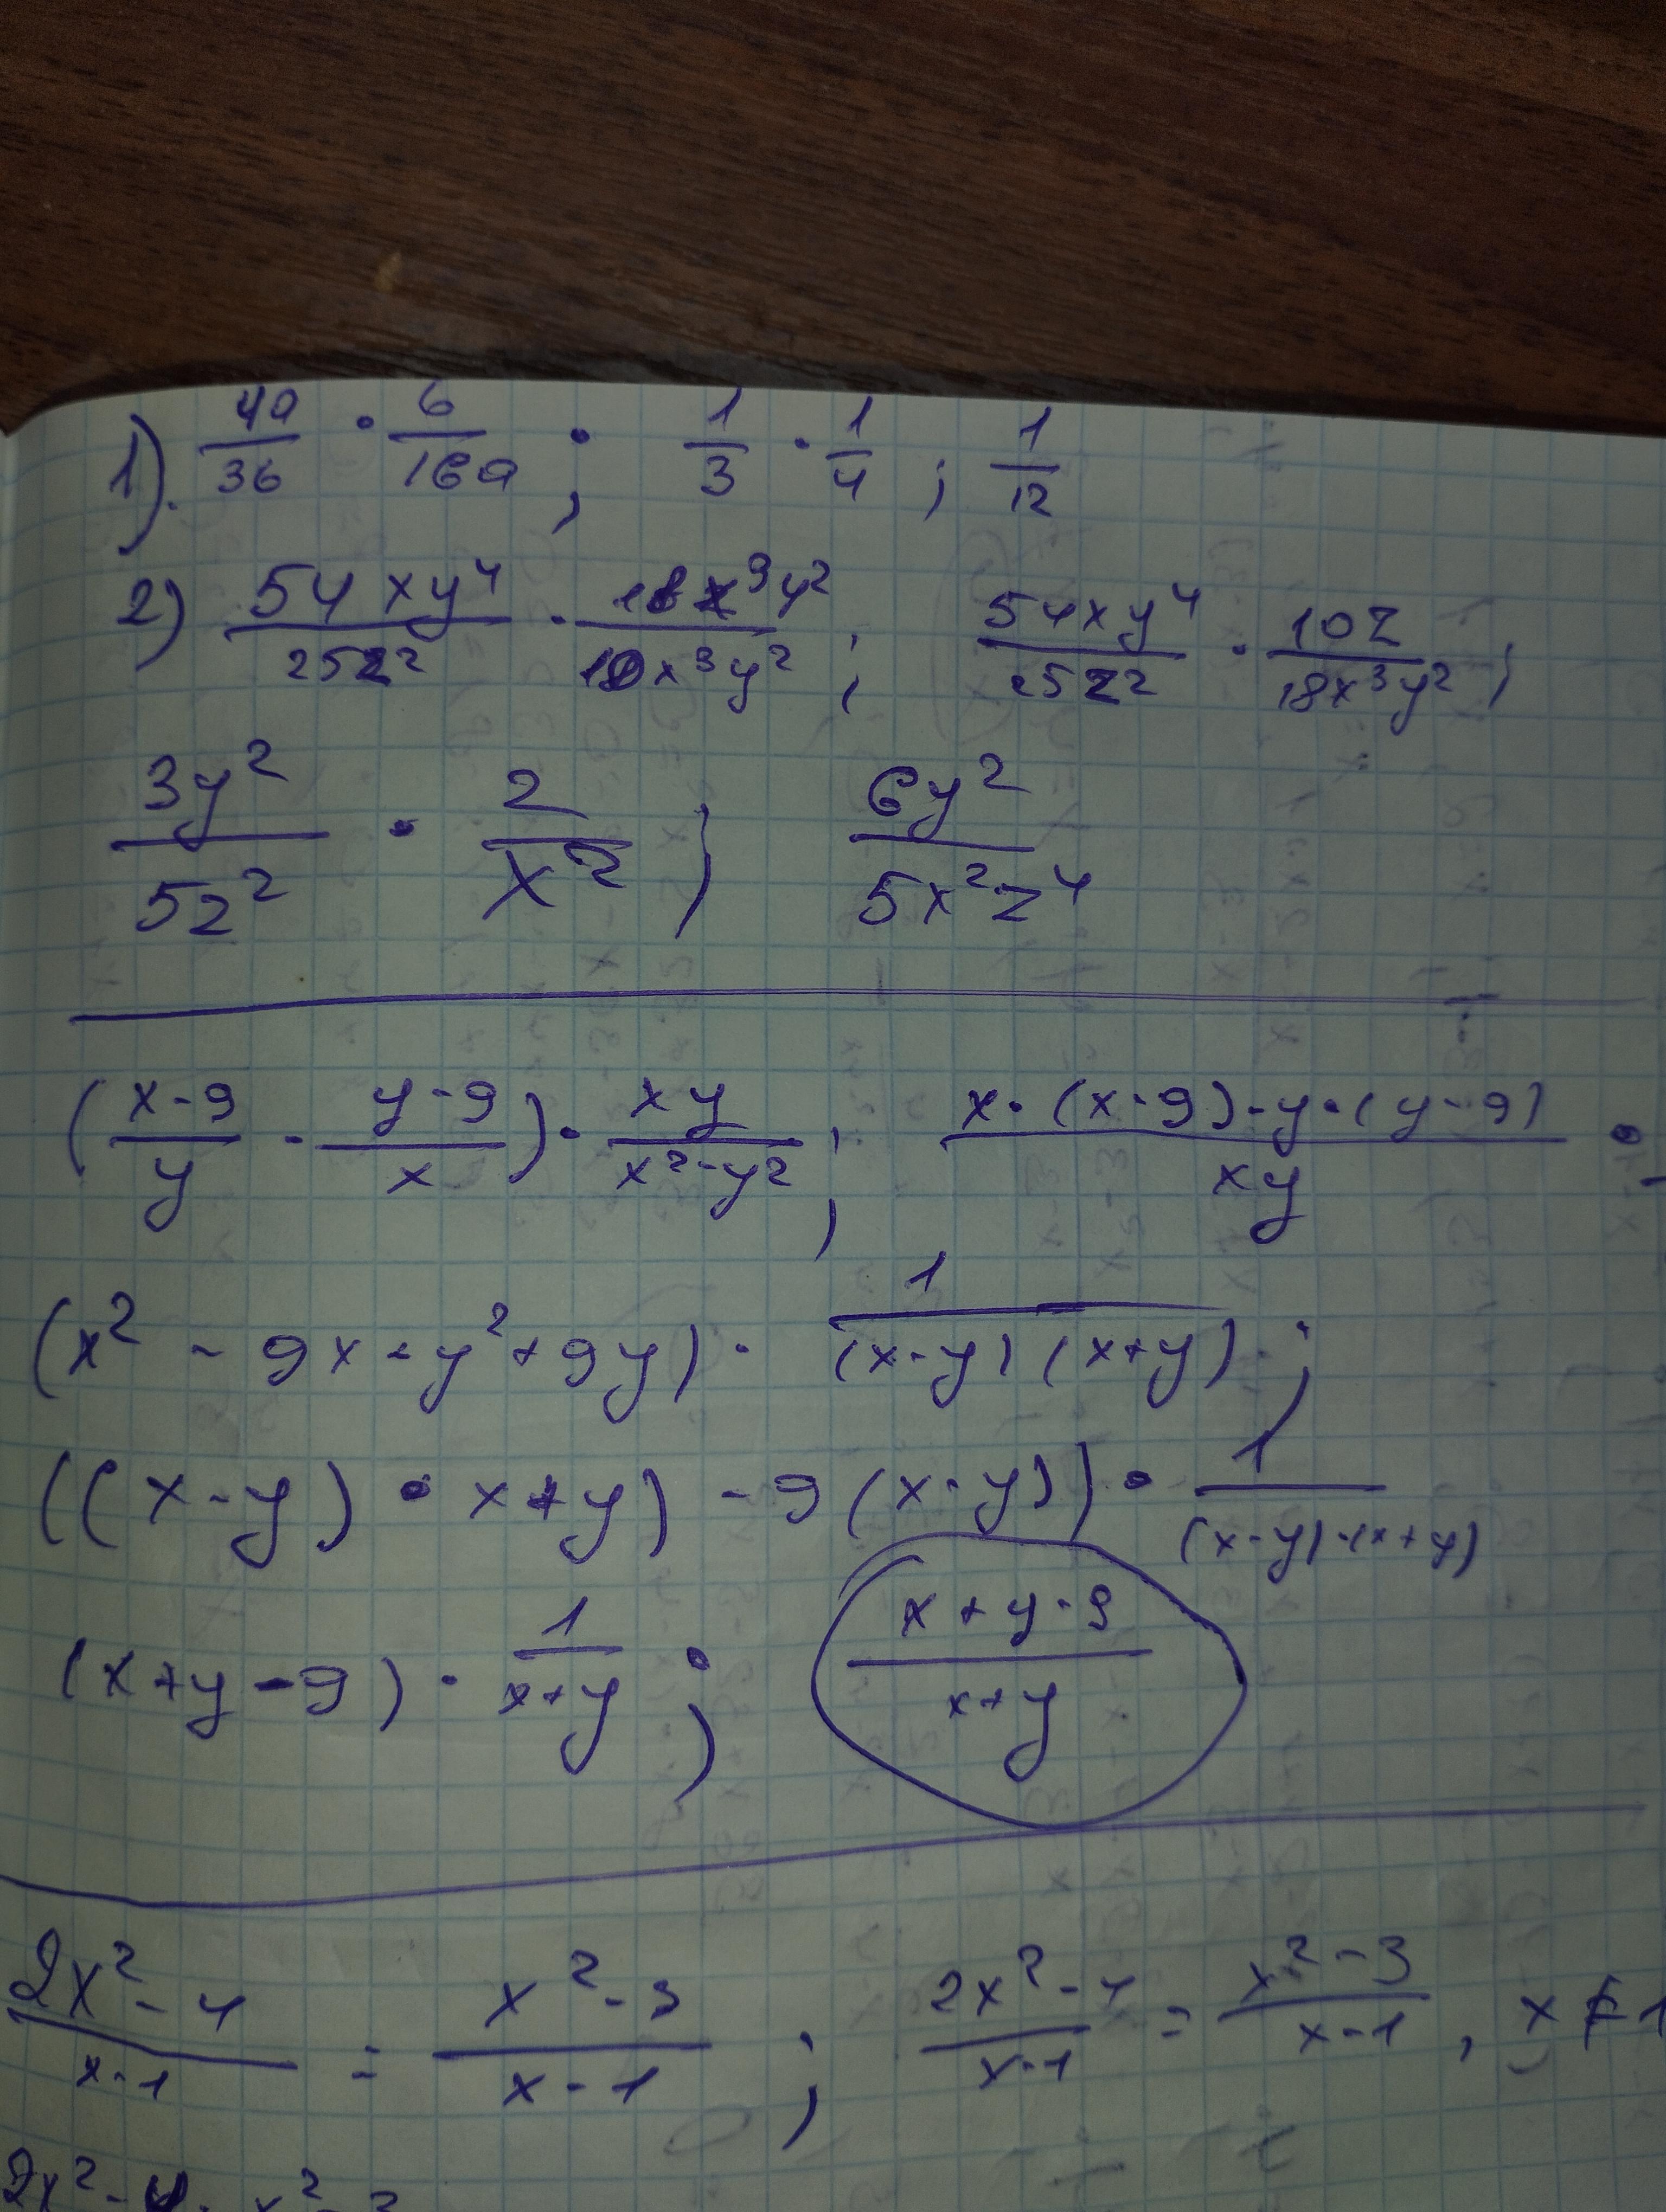 1). 4a/36 · 6/16a ; 1/3 · 1/4 ; 1/12
2) 54xy⁴/25z² · 18x³y²/10x³y² ; 54xy⁴/25z² · 10z/18x³y² ;
3y²/5z² · 2/x² ; 6y²/5x²z⁴
(x-9/y - y-9/x) · xy/x²-y² ; x·(x-9)-y·(y-9)/xy ·
(x² - 9x - y² + 9y) · 1/(x-y)(x+y) ;
((x-y) · x+y) - 9(x-y)) · 1/(x-y)·(x+y)
(x+y-9) · 1/x+y ; x+y-9/x+y
2x²-4/x-1 = x²-3/x-1 ; 2x²-4/x-1 = x²-3/x-1 , x≠1